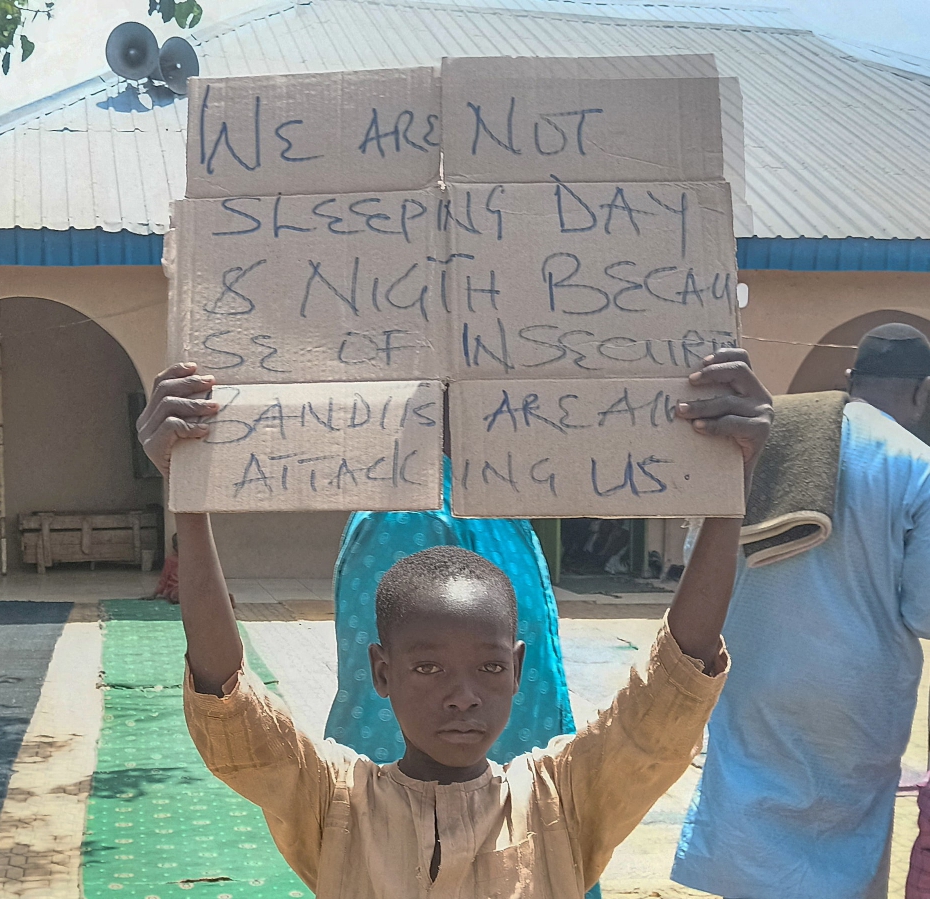 WE ARE NOT
SLEEPING DAY
& NIGTH BECAU
SE OF INSECURIT
BANDITS ARE
ATTACKING US.